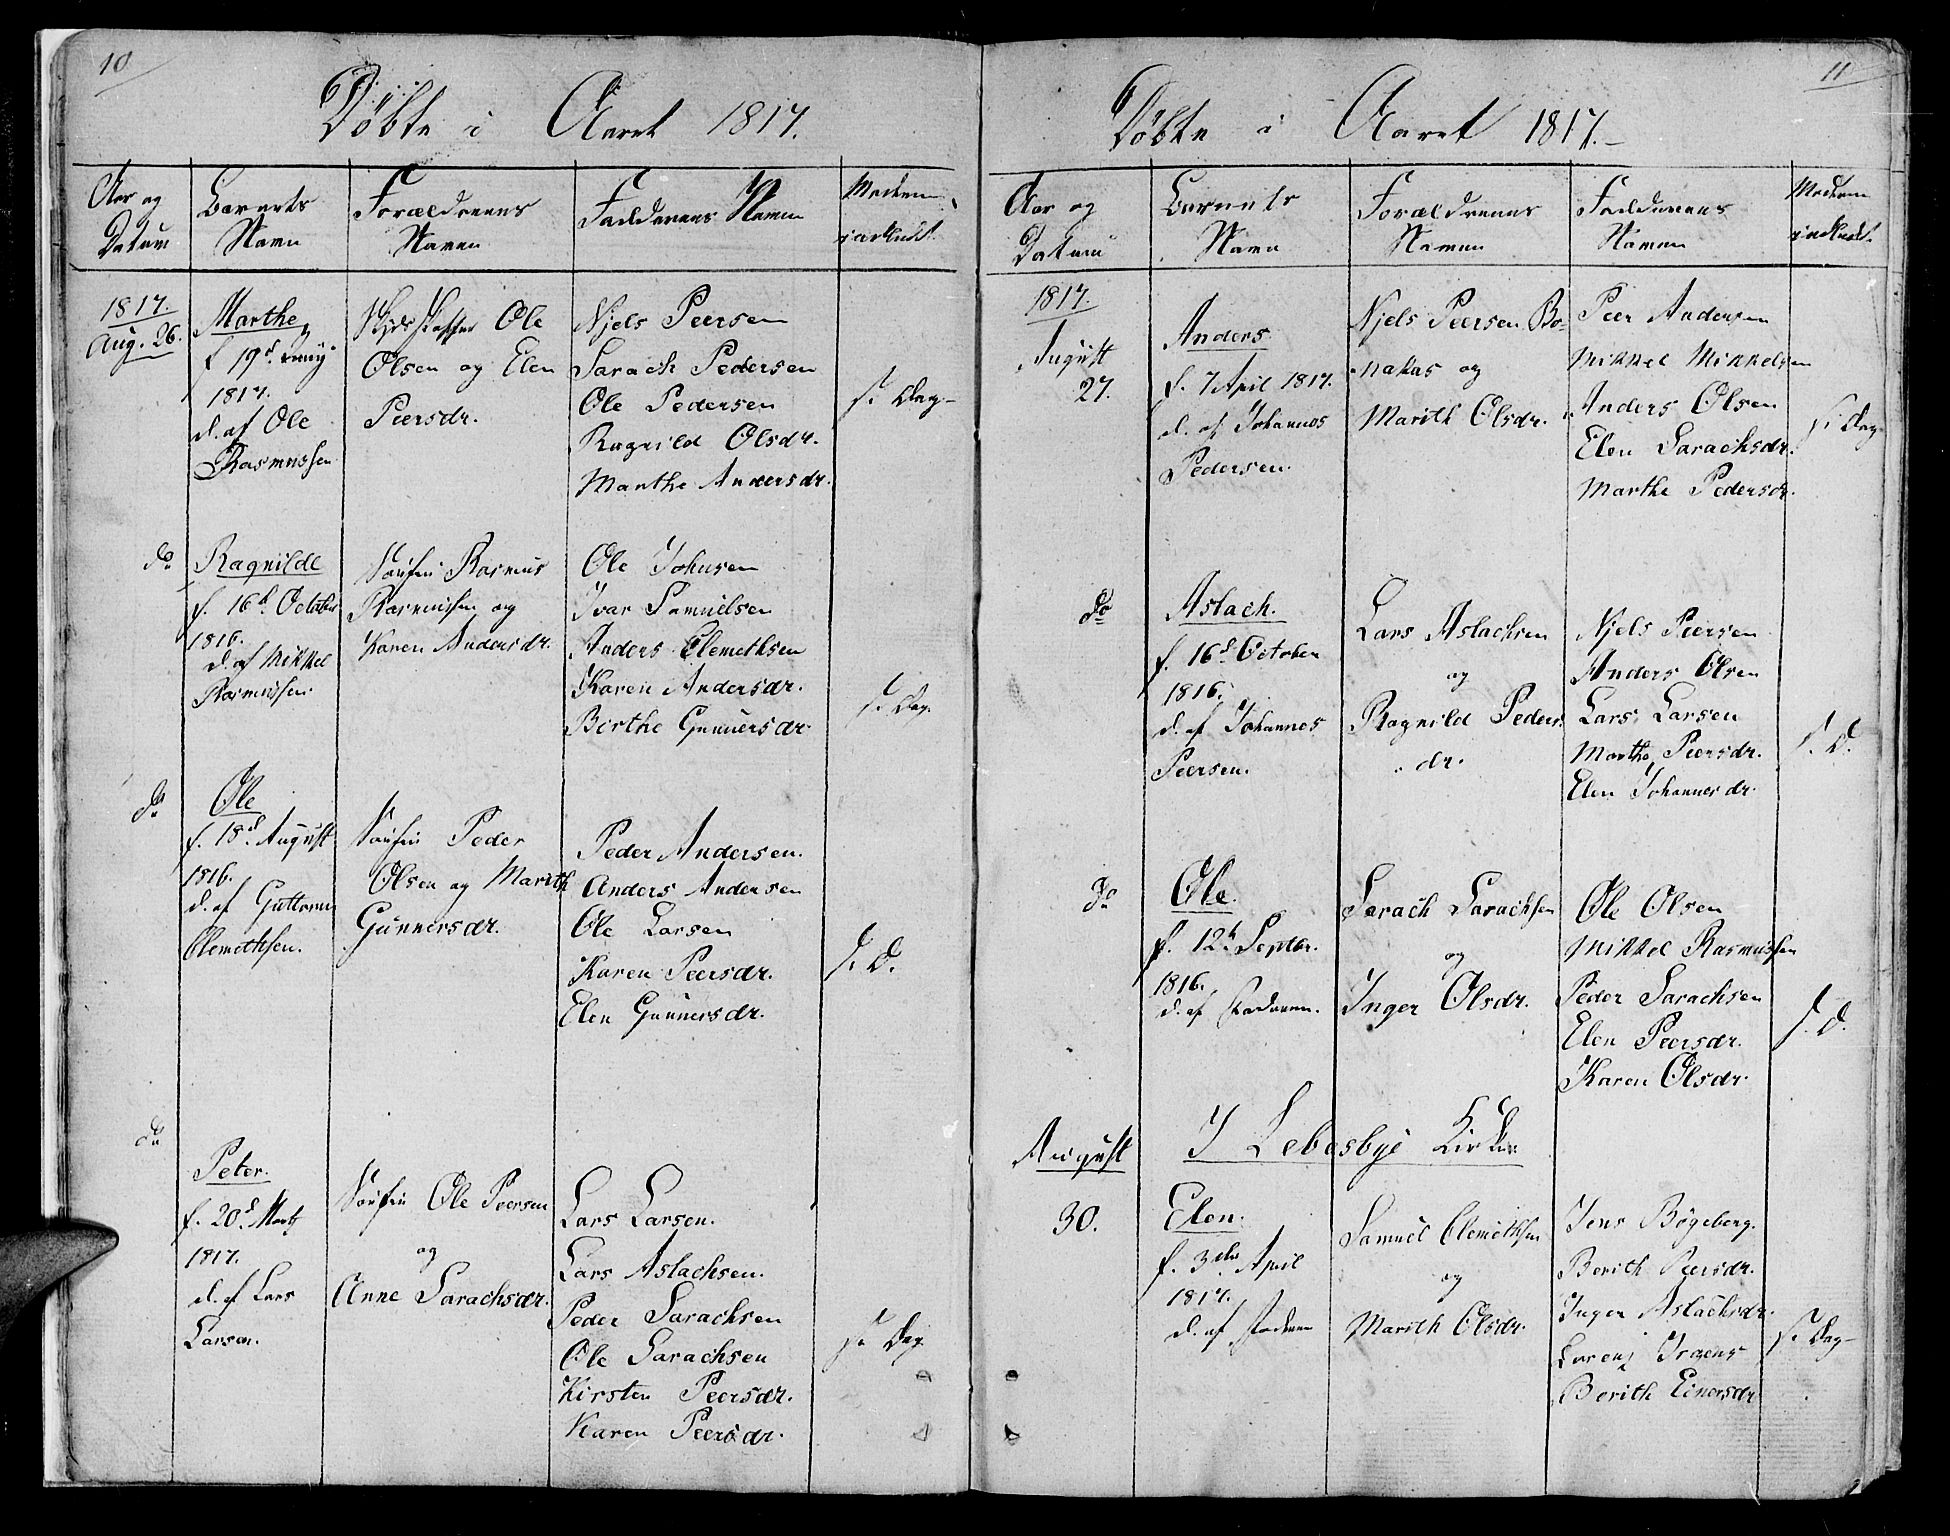 10
Döbte i Aaret 1817.
Aar og Datum
Barnets Navn
Forældrenes Navne
Faddernes Navne
Moderen indledt.
1817.
Aug. 26.
Marthe
f 19d
1817.
d. af Ole
Rasmussen
Ole
Olsen og Elen
Peersdr.
Njels Peersen
Sarach Pedersen
Ole Pedersen
Ragnild Olsdr.
Marthe Andersdr.
s. Dag
do
Ragnilde
f. 16d October
1816.
d. af Mikkel
Rasmussen.
Rasmus
Rasmussen og
Karen Andersdr.
Ole Johnsen
Ivar Samuelsen
Anders Clemethsen
Karen Andersdr.
Birthe Gunnersdr.
s. Dag.
do
Ole
f. 18d August
1816.
d. af Guttorm
Clemethsen.
Peder
Olsen og Marith
Gunnersdr.
Peder Andersen.
Anders Andersen
Ole Larsen
Karen Peersdr.
Elen Gunnersdr.
s. D.
do
Peter.
f. 20d Martz
1817.
d. af Lars
Larsen.
Ole Peersen
og
Anne Sarachsdr.
Lars Larsen.
Lars Aslachsen.
Peder Sarachsen
Ole Sarachsen
Kirsten Peersdr.
Karen Peersdr.
s. Dag
11
Döbte i Aaret 1817.
Aar og Datum
Barnets Navn
Forældrenes Navne
Faddernes Navne
Moderen indledt.
1817.
August
27.
Anders
f. 7 April 1817.
d. af Johannes
Pedersen.
Njels Peersen Bo-
nakas og
Marith Olsdr.
Peer Andersen
Mikkel Mikkelsen
Anders Olsen
Elen Sarachsdr.
Marthe Pedersdr.
s. Dag
do
Aslach.
f. 16d October
1816.
d. af Johannes
Peersen.
Lars Aslachsen
og
Ragnild Peders
dr.
Njels Peersen
Anders Olsen
Lars Larsen
Marthe Peersdr.
Elen Johannesdr.
s. D.
do
Ole.
f. 12t Septbr.
1816.
d. af Faderen.
Sarach Sarachsen
og
Inger Olsdr.
Ole Olsen
Mikkel Rasmussen
Peder Sarachsen
Elen Peersdr.
Karen Olsdr.
s. D.
August
I Lebesbye Kirke
30.
Elen.
f. 3die April
1817.
d. af Faderen
Samuel Clemethsen
og
Marith Olsdr.
Jens Bögeberg.
Berith Peersdr.
Inger Aslachsdr.
Lorenz Irgens
Berith Einersdr
s. Dag